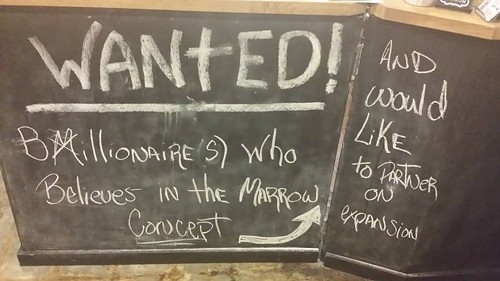 WANTED!
BMillionaire(s) who
Believes in the Marrow
Concept
AND
would
LiKE
to PARTNER
ON
expansion